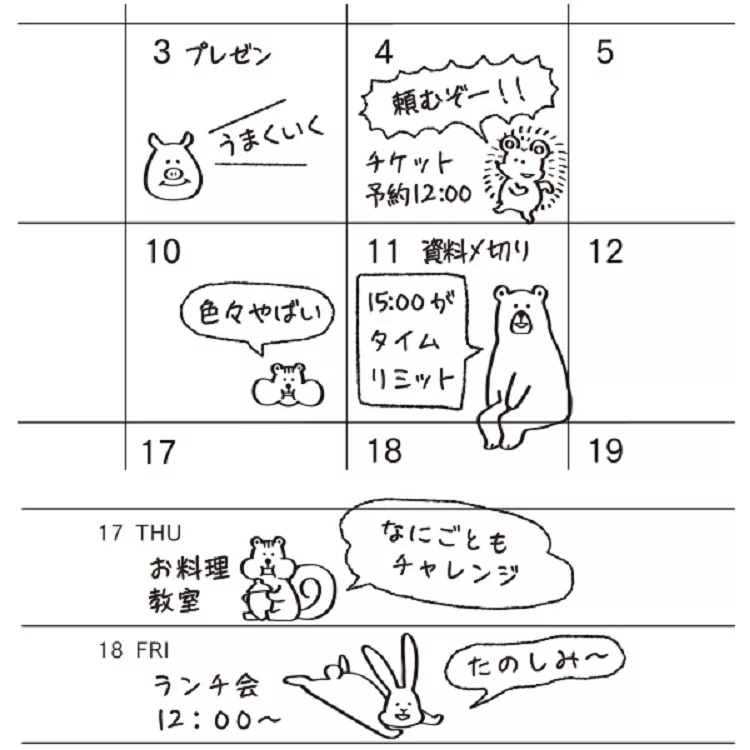 3 プレゼン
うまくいく
4
頼むぞー!!
チケット
予約12:00
5
10
色々やばい
11 資料〆切り
15:00が
タイム
リミット
12
17
18
19
17 THU
お料理
教室
なにごとも
チャレンジ
18 FRI
ランチ会
12:00〜
たのしみ〜